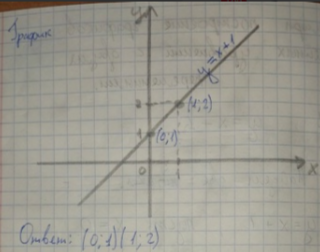 График
y
y=x+1
2
(1;2)
1
(0;1)
0
1
x
Ответ: (0;1)(1;2)